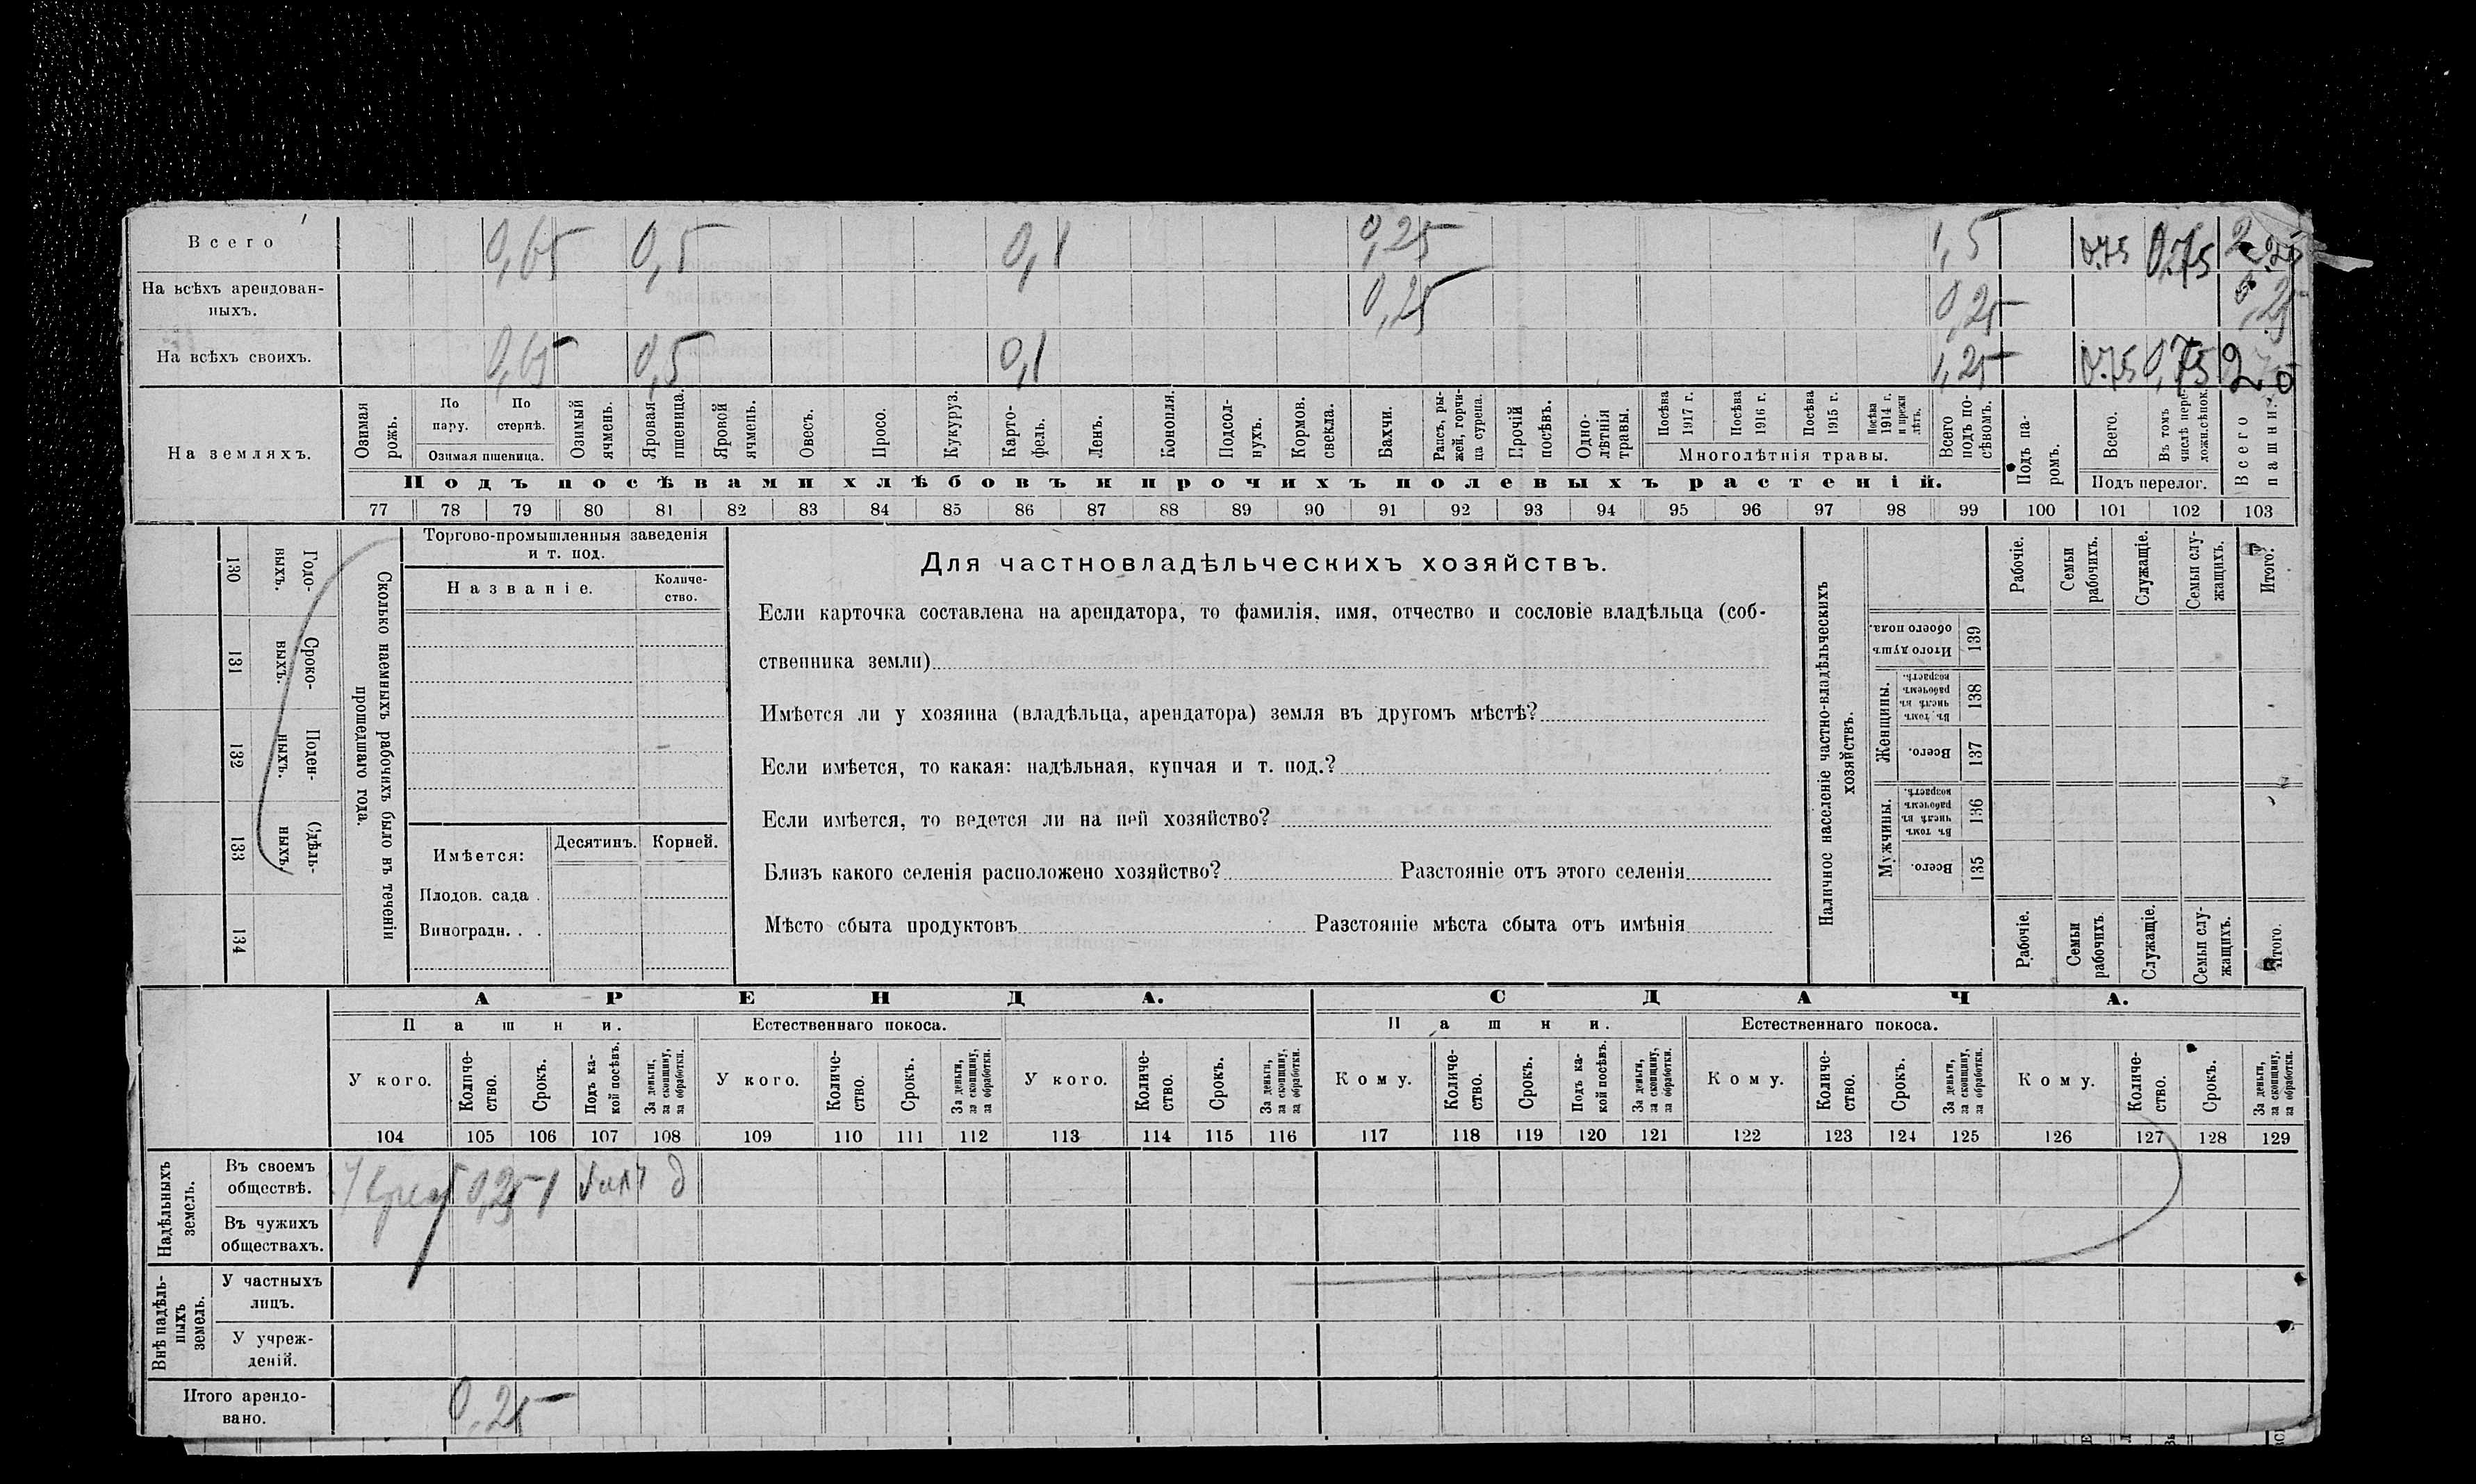 Всего 0,65 0,5 0,1 0,25 1,5 0.75 0,75 2.25
На всѣхъ арендован-
ныхъ. 0,25 0,25 0,25
На всѣхъ своихъ. 0,65 0,5 0,1 1,25 0.75 0,75 2
На земляхъ.
Озимая
рожь.
По
пару.
По
стернѣ.
Озимая пшеница.
Озимый
ячмень.
Яровая
пшеница.
Яровой
ячмень.
Овесъ.
Просо.
Кукуруз.
Карто-
фель.
Ленъ.
Конопля.
Подсол-
нухъ.
Кормов.
свекла.
Бахчи.
Рапсъ, ры-
жей, горчи-
ца сурепа.
Прочій
посѣвъ.
Одно-
лѣтнія
травы.
Посѣва
1917 г.
Посѣва
1916 г.
Посѣва
1915 г.
Посѣва
1914 г.
и прежн
лѣтъ.
Многолѣтнія травы.
Всего
подъ по-
сѣвомъ.
Подъ па-
ромъ.
Всего.
Въ томъ
числѣ пере
ложн.сѣнок.
Подъ перелог.
Всего
пашни.
Подъ посѣвами хлѣбовъ и прочихъ полевыхъ растеній.
77 78 79 80 81 82 83 84 85 86 87 88 89 90 91 92 93 94 95 96 97 98 99 100 101 102 103
130
Годо-
выхъ.
131
Сроко-
выхъ.
132
Поден-
ныхъ.
133
Сдѣль-
ныхъ.
134
Сколько наемныхъ рабочихъ было въ теченіи
прошедшаго года.
Торгово-промышленныя заведенія
и т. под.
Названіе.
Количе-
ство.
Имѣется: Десятинъ. Корней.
Плодов. сада .
Виноградн. . .
Для частновладѣльческихъ хозяйствъ.
Если карточка составлена на арендатора, то фамилія, имя, отчество и сословіе владѣльца (соб-
ственника земли)
Имѣется ли у хозяина (владѣльца, арендатора) земля въ другомъ мѣстѣ?
Если имѣется, то какая: надѣльная, купчая и т. под.?
Если имѣется, то ведется ли на ней хозяйство?
Близъ какого селенія расположено хозяйство? Разстояніе отъ этого селенія
Мѣсто сбыта продуктовъ Разстояніе мѣста сбыта отъ имѣнія
Наличное населеніе частно-владѣльческихъ
хозяйствъ.
Рабочіе.
Семьи
рабочихъ.
Служащіе.
Семьи слу-
жащихъ.
Итого.
Итого душъ
обоего пола.
139
Женщины.
Въ томъ
числѣ въ
рабочемъ
возрастѣ.
138
Всего.
137
Мужчины.
Въ томъ
числѣ въ
рабочемъ
возрастѣ.
136
Всего.
135
Рабочіе.
Семьи
рабочихъ.
Служащіе.
Семьи слу-
жащихъ.
Итого.
АРЕНДА. СДАЧА.
Пашни. Естественнаго покоса. Пашни. Естественнаго покоса.
У кого.
Количе-
ство.
Срокъ.
Подъ ка-
кой посѣвъ.
За деньги,
за скопщину,
за обработки.
У кого.
Количе-
ство.
Срокъ.
За деньги,
за скопщину,
за обработки.
У кого.
Количе-
ство.
Срокъ.
За деньги,
за скопщину,
за обработки.
Кому.
Количе-
ство.
Срокъ.
Подъ ка-
кой посѣвъ.
За деньги,
за скопщину,
за обработки.
Кому.
Количе-
ство.
Срокъ.
За деньги,
за скопщину,
за обработки.
Кому.
Количе-
ство.
Срокъ.
За деньги,
за скопщину,
за обработки.
104 105 106 107 108 109 110 111 112 113 114 115 116 117 118 119 120 121 122 123 124 125 126 127 128 129
Надѣльныхъ
земель.
Въ своемъ
обществѣ. 0,25 1 д
Въ чужихъ
обществахъ.
Внѣ надѣль-
ныхъ
земель.
У частныхъ
лицъ.
У учреж-
деній.
Итого арендо-
вано. 0,25